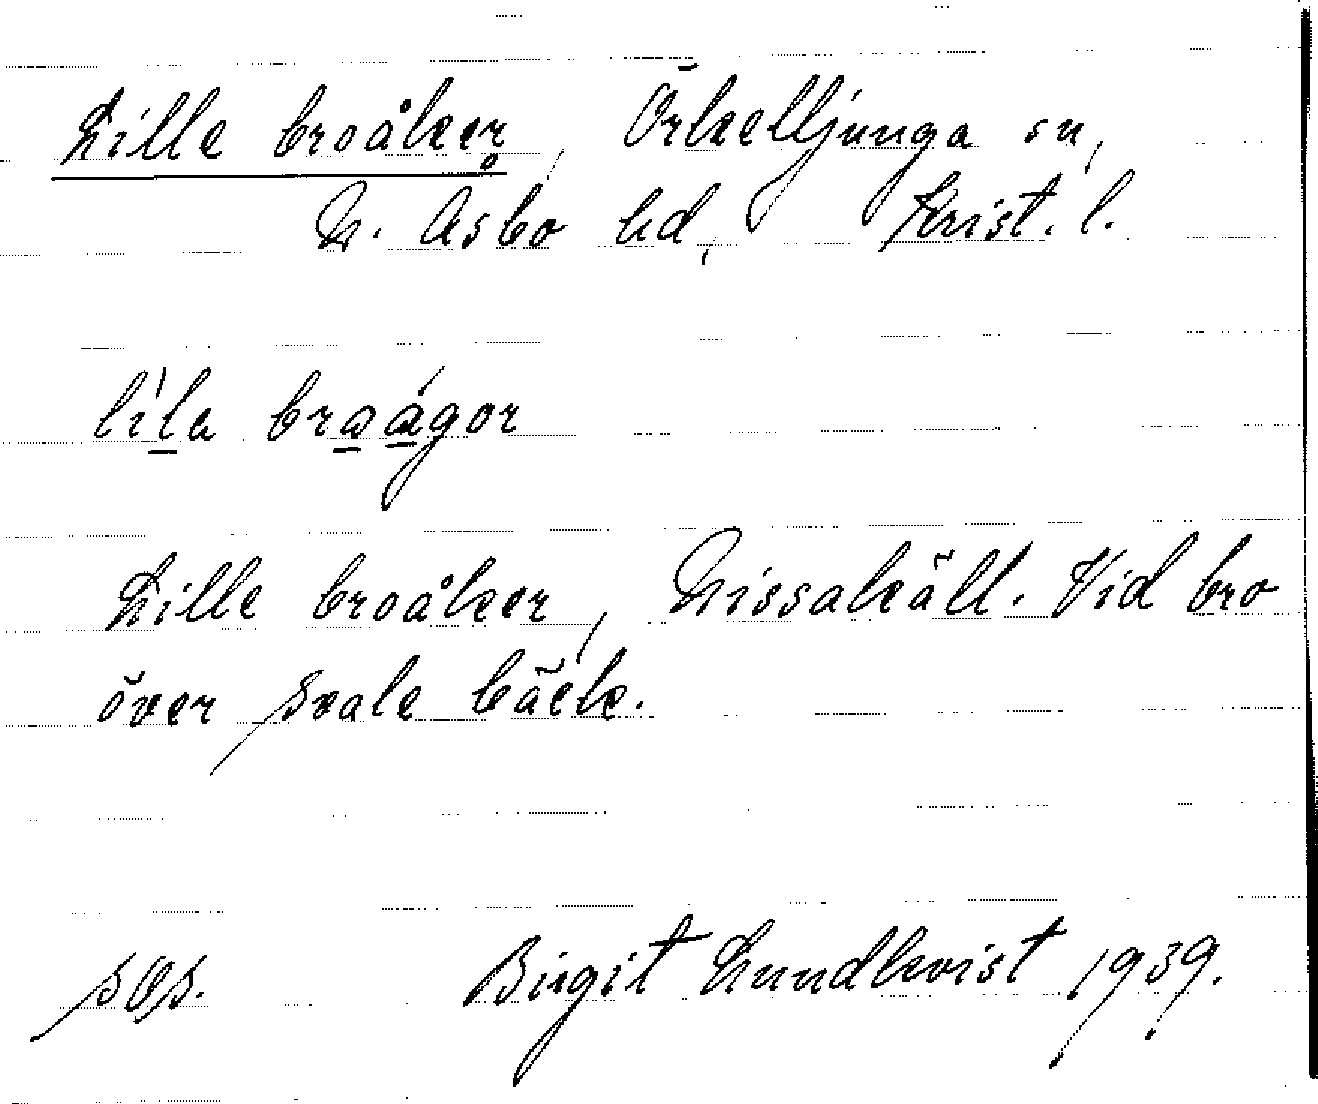 Lille broåker, Örkelljunga sn,
N. Åsbo hd, Krist. l.
lila braågor
Lille broåker, Nissakäll. Vid bro
över svale bäck.
Birgit Lundkvist 1939.